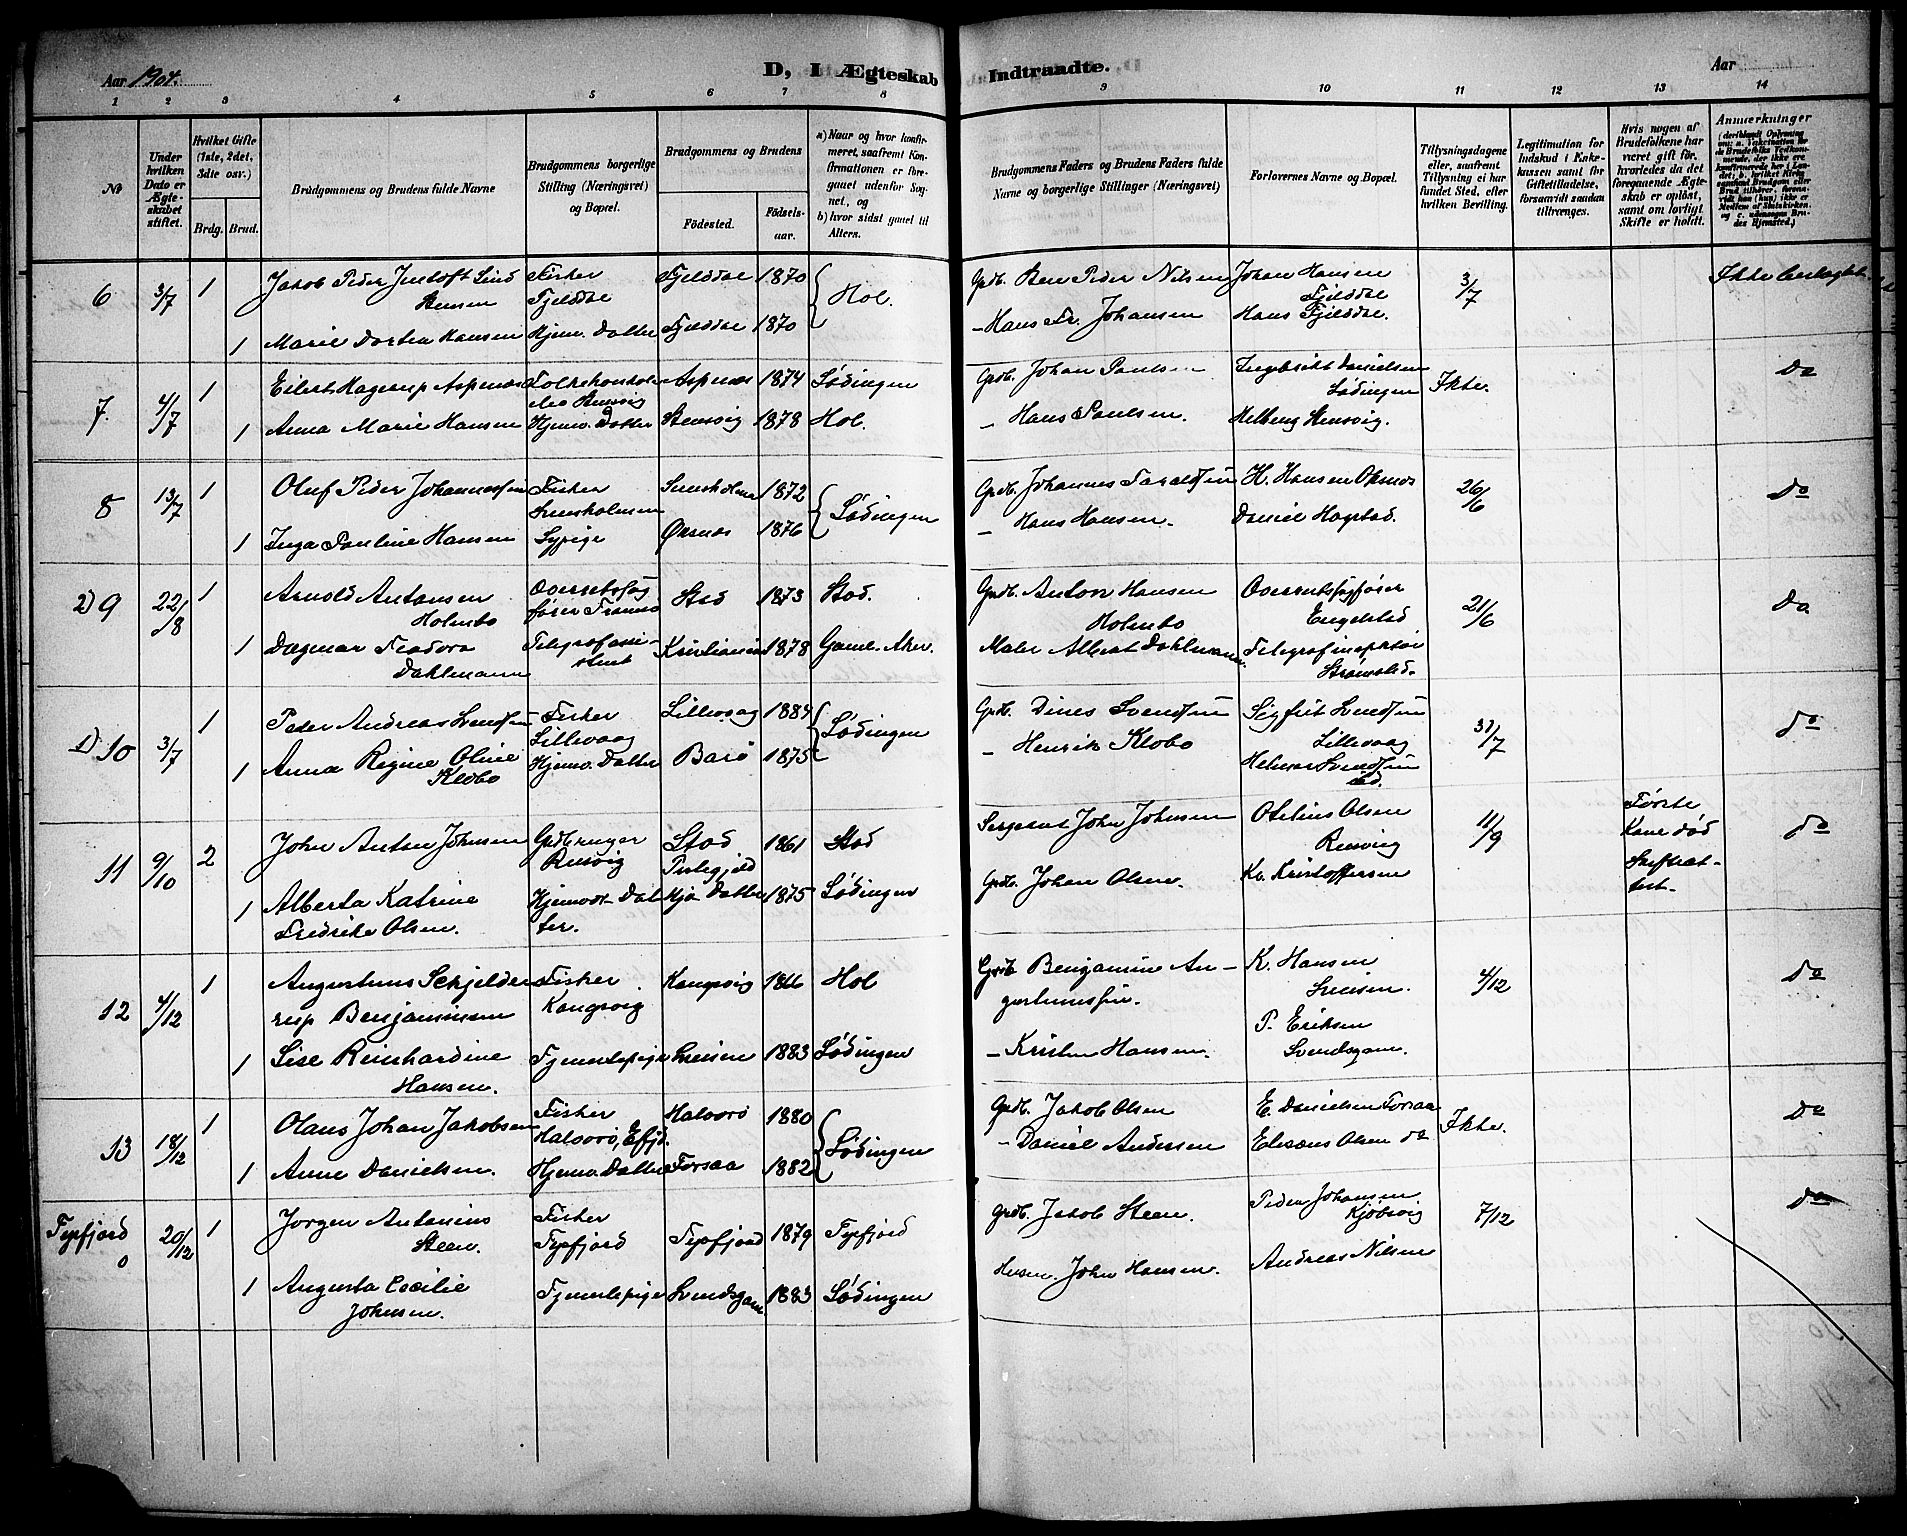 Aar 1904.
D, I Ægteskab Indtraadte.
Aar
1 2 3 4 5 6 7 8 9 10 11 12 13 14
№
Under hvilken Dato er Ægteskabet stiftet.
Hvilket Gifte (1ste, 2det, 3die osv.)
Brdg. Brud.
Brudgommens og Brudens fulde Navne
Brudgommens borgerlige Stilling (Næringsvei) og Bopæl.
Brudgommens og Brudens
Fødested. Fødselsaar.
a) Naar og hvor konfirmeret, saafremt Konfirmationen er foregaaet udenfor Sognet, og
b) hvor sidst gaaet til Alters.
Brudgommens Faders og Brudens Faders fulde Navne og borgerlige Stillinger (Næringsvei)
Forlovernes Navne og Bopæl.
Tillysningsdagene eller, saafremt Tillysning ei har fundet Sted, efter hvilken Bevilling.
Legitimation for Indskud i Enkekassen samt for Giftetilladelse, forsaavidt saadan tiltrænges.
Hvis nogen af Brudefolkene har været gift før, hvorledes da det foregaaende Ægteskab er opløst, samt om lovligt Skifte er holdt.
Anmærkninger
6 3/7 1 Jakob Peder Jentoft Bensen Fisker Fjelddal Fjelddal 1870 Hol. Grdb. Peder Nilsen Johan Hansen Fjelddal 3/7 Ikke beslægtet
1 Marie Dortea Hansen Hjemv. Datter Fjelddal 1870 - Hans Fr. Johansen Hans Fjelddal.
7. 4/7 1 Eilert Hagerup Aspenæs Aspenæs 1874 Lødingen Grdb. Johan Paulsen Ingebrikt Danielsen Lødingen Ikke. Do
1 Anna Marie Hansen Hjemv. Datter Stensvig 1878 Hol. - Hans Paulsen. Stensvig.
8 13/7 1 Oluf Peder Johannessen Fisker 1872 Lødingen Grdb. Johannes H. Hansen Øksnes 26/6 Do
1 Inga Pauline Hansen Sypige Øksnes 1876 - Hans Hansen. Daniel Hagstad.
D 9 22/8 1 Arnold Antonsen Holmbo Overretssagfører Tromsø Stod 1873 Stod. Grdb. Anton Hansen Holmbo Overretssagfører Engelstad 21/6 Do
1 Dagmar Feodora Dahlmann Telegrafassistent Kristiania 1878 Gaml. Aker. Maler Albert Dahlmann Telegrafinspektør Strømsted.
D 10 3/7 1 Peder Andreas Svendsen Fisker Lillevaag Lillevaag 1884 Lødingen Grdb. Dines Svendsen Sigfrit Svendsen Lillevaag 31/7 do
1 Anna Regine Oline Klobo Hjemv. Datter Barø 1875 - Henrik Klobo Helmer Svendsen
11 9/10 2 John Anton Johnsen Grdbruger Rinsvig Stod 1861 Stod Sergeant John Johnsen Otelius Olsen Rinsvig 11/9 Første Kone død Skifteattest. do
1 Alberta Katrine Fredrikke Olsen. Hjemv. Datter. 1875 Lødingen Grdb. Johan Olsen. Kr. Kristoffersen
12 4/12 1 Augustinus Schjelderup Benjaminsen Fisker Kongsvig Kongsvig 1866 Hol Grdb. Benjamin Augustinussen. K. Hansen 4/12 do
1 Lise Reinhardine Hansen. Tjenestepige 1883 Lødingen - Kristen Hansen. P. Eriksen Svendsgam.
13 18/12 1 Olaus Johan Jakobsen Fisker Halvorø, Efjd. Halvorø 1880 Lødingen Grdb. Jakob Olsen E. Danielsen Forsaa Ikke. Do
1 Anne Danielsen. Hjemv. Datter Forsaa 1882 - Daniel Andersen Edisæus Olsen do
Tysfjord 0 20/12 1 Jørgen Antonius Steen. Fisker Tysfjord Tysfjord 1879 Tysfjord Grdb. Jakob Steen. Peder Johansen Kjøbsvig 7/12 do
1 Augusta Cecilie Johnsen. Tjenestepige Svendsgam 1883 Lødingen Husm. John Hansen. Andreas Nilsen